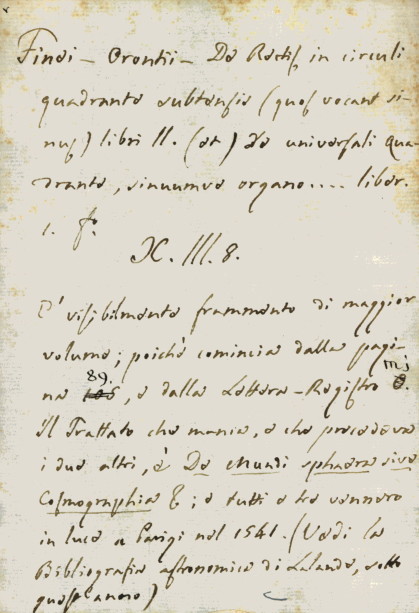 Finei - Orontii - De Rectis in circuli
quadrante subtensis (quos vocant si-
nus) libri II. (et) De universali qua-
drante, sinuumve organo.... liber.
1. f.°
X. III. 8.
E' visibilmente frammento di maggior
volume; poichè comincia dalla pagi-
na 105 89., e dalla Lettera-Registro
Il Trattato che manca, e che precedeva
i due altri, è De Mundi sphaera sive
Cosmographia &; e tutti e tre vennero
in luce a Parigi nel 1541. (Vedi la
Bibliografia astronomica di Lalande, sotto
quest'anno)